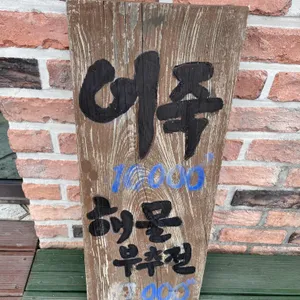 어죽
10,000
해물
부추전